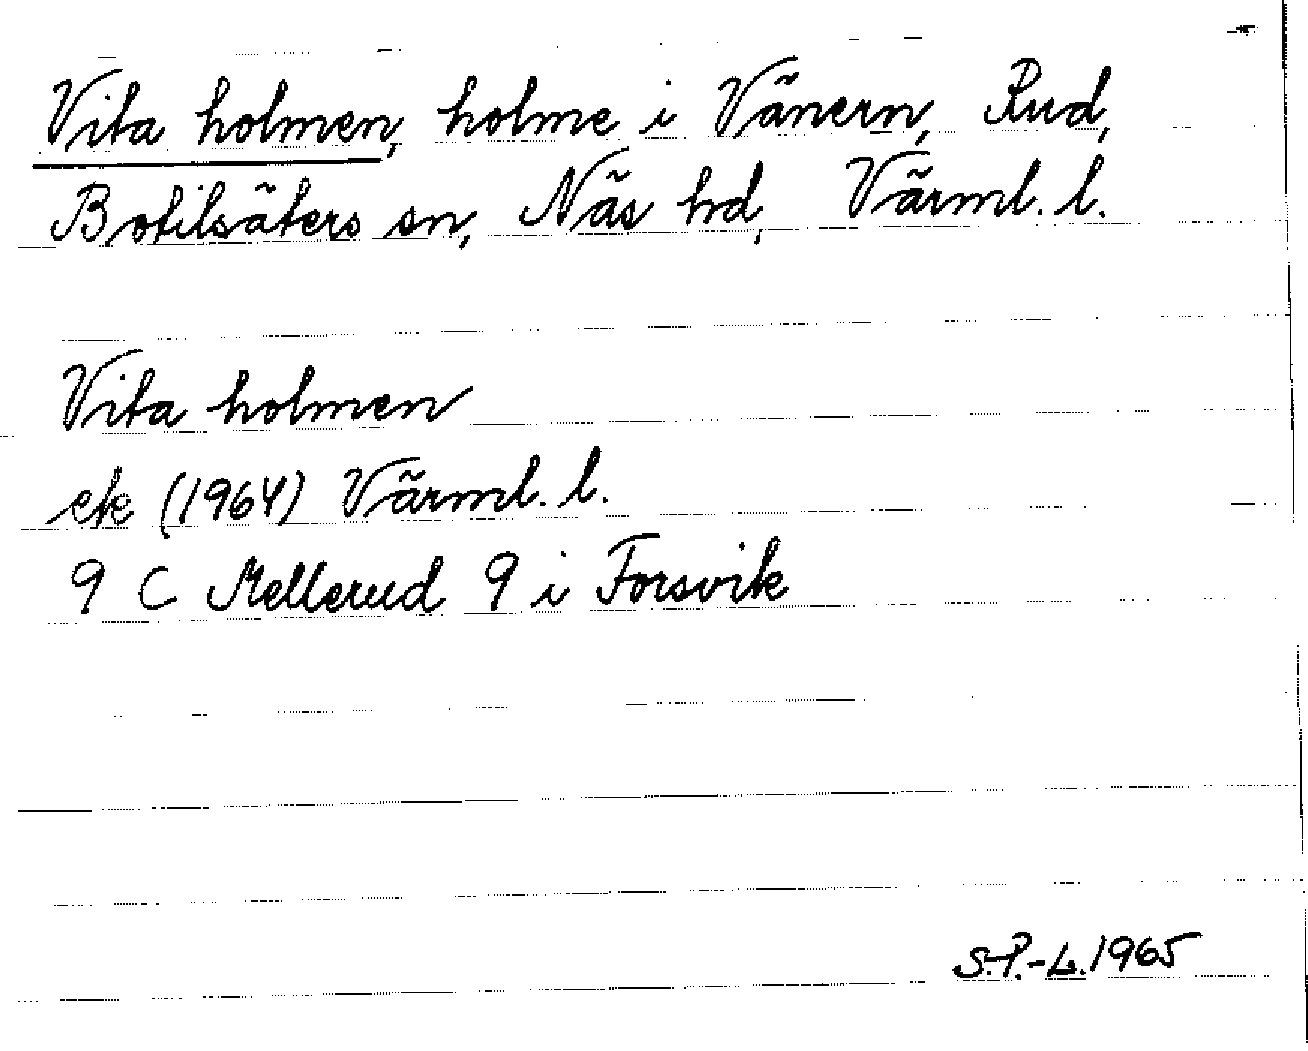 Vita holmen, holme i Vänern, Rud,
Botilsäters sn, Näs hd, Värml. l.
Vita holmen
ek (1964) Värml. l.
9 C Mellerud 9 i Forsvik
S.P.-L. 1965